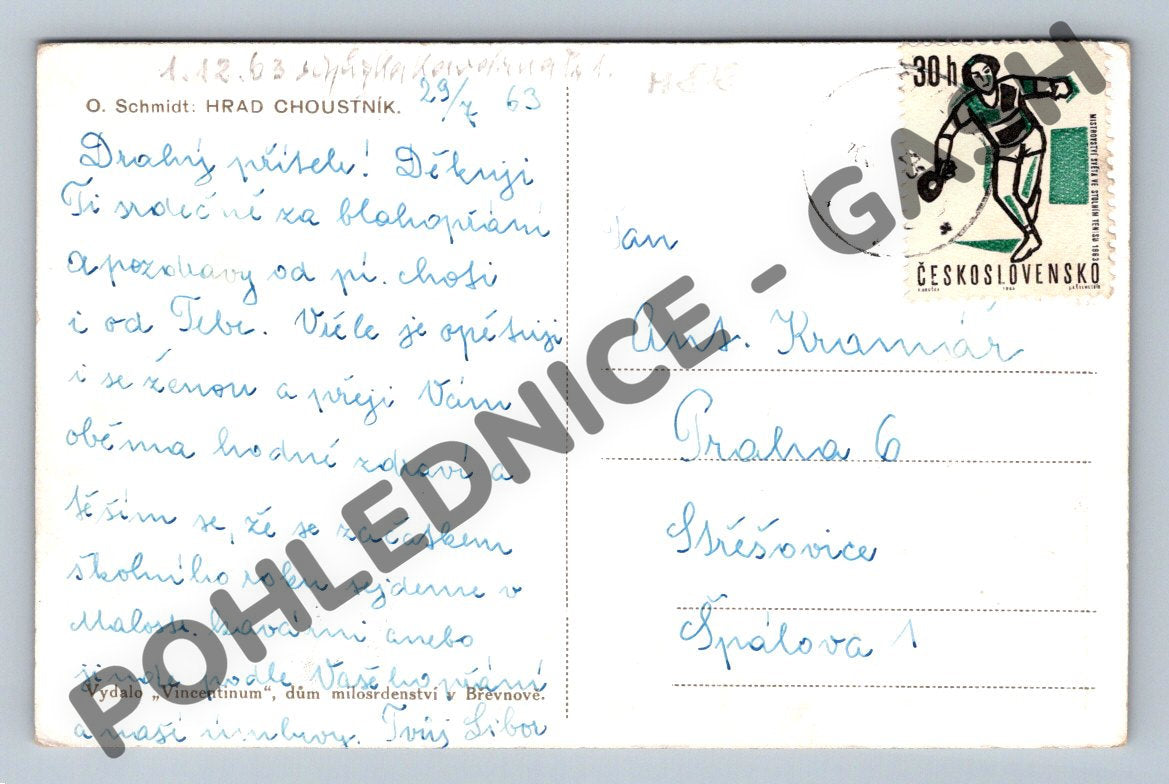 1.12.63
O. Schmidt: HRAD CHOUSTNÍK.
29/7 63
Drahý příteli! Děkuji
Ti srdečně za blahopřání
a pozdravy od pí. choti
i od Tebe. Vřele je opětuji
i se ženou a přeji Vám
oběma hodně zdraví a
těším se, že se začátkem
školního roku sejdeme v
Malostr. kavárni anebo
jinde podle Vašeho přání
Vydalo „Vincentinum“, dům milosrdenství v Břevnově.
a naší úmluvy. Tvůj Libor
30 h
MISTROVSTVÍ SVĚTA VE STOLNÍM TENISU 1963
ČESKOSLOVENSKO
Pan
Ant. Kramář
Praha 6
Střešovice
Špálova 1
POHLEDNICE - GACH